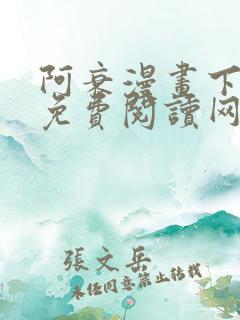 阿衰漫畫下
免費閱讀网
張文岳
未经同意禁止转载